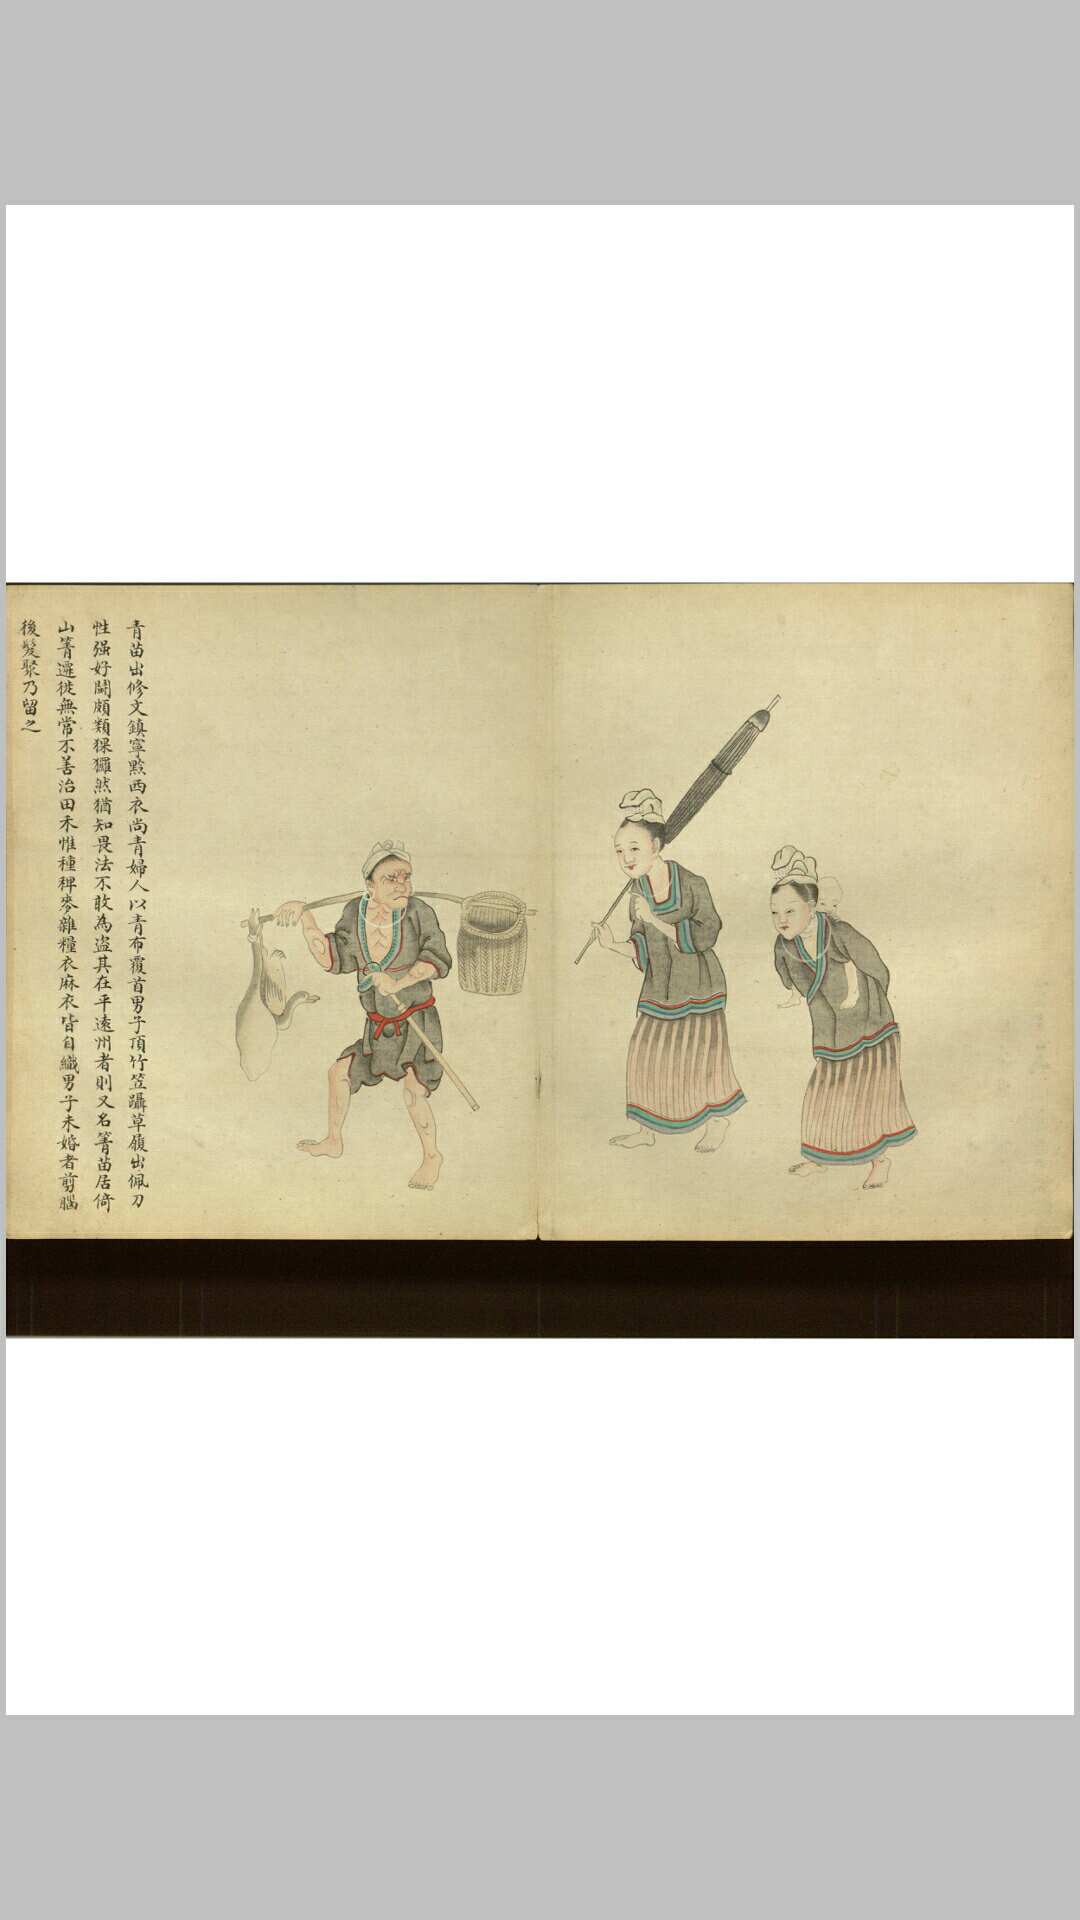 青苗出修文鎮寧黔西衣尚青婦人以青布覆首男子頂竹笠躡草履出佩刀
性强好鬪頗類猓玀然猶知畏法不敢為盗其在平遠州者則又名箐苗居倚
山箐遷徙無常不善治田禾惟種稗麥雜糧衣麻衣皆自織男子未婚者剪腦
後髮聚乃留之